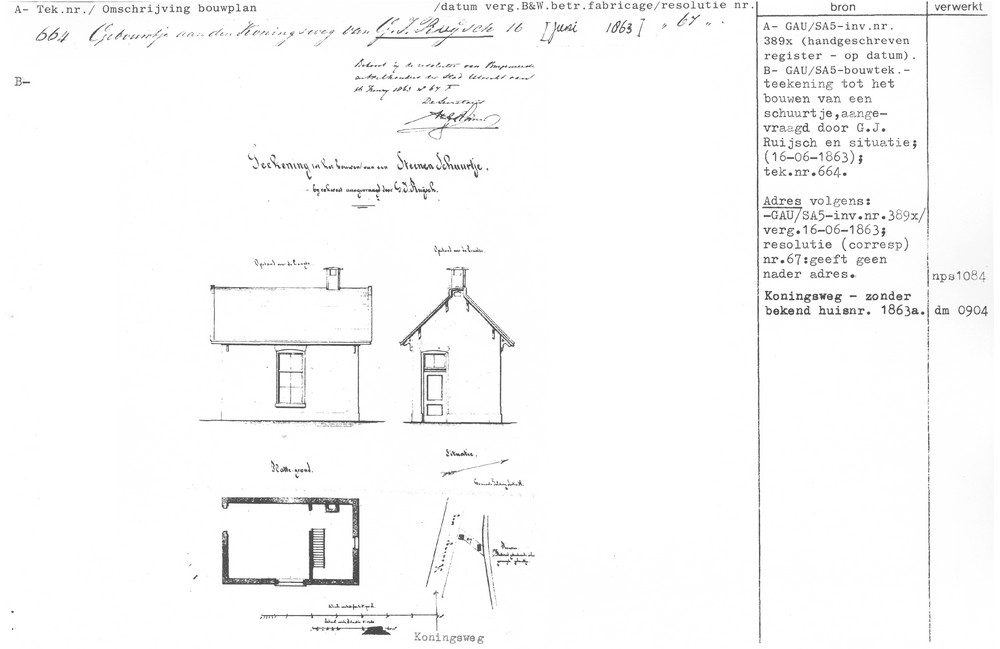 A- Tek.nr./ Omschrijving bouwplan /datum verg.B&W.betr.fabricage/resolutie nr.
bron
verwerkt
664 Gebouwtje aan den Koningsweg van G.J. Ruijsch 16 [Juni 1863] " 67 "
B-
Behoort bij de resolutie van Burgemeester
en Wethouders der Stad Utrecht van
16 Juny 1863 No 67 F
De Secretaris
Teekening tot het bouwen van een Steenen Schuurtje.
- bij rekwest aangevraagd door G.J. Ruijsch.
Opstand aan de Lengte.
Opstand aan de Breedte.
Platte-grond.
Situatie.
Koningsweg
A- GAU/SA5-inv.nr.
389x (handgeschreven
register - op datum).
B- GAU/SA5-bouwtek.-
teekening tot het
bouwen van een
schuurtje,aange-
vraagd door G.J.
Ruijsch en situatie;
(16-06-1863);
tek.nr.664.
Adres volgens:
-GAU/SA5-inv.nr.389x/
verg.16-06-1863;
resolutie (corresp)
nr.67:geeft geen
nader adres.
nps1084
Koningsweg - zonder
bekend huisnr. 1863a.
dm 0904